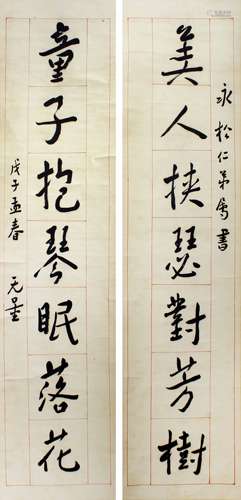 永松仁弟属书
美人挟瑟對芳樹
童子抱琴眠落花
戊子孟春
无量